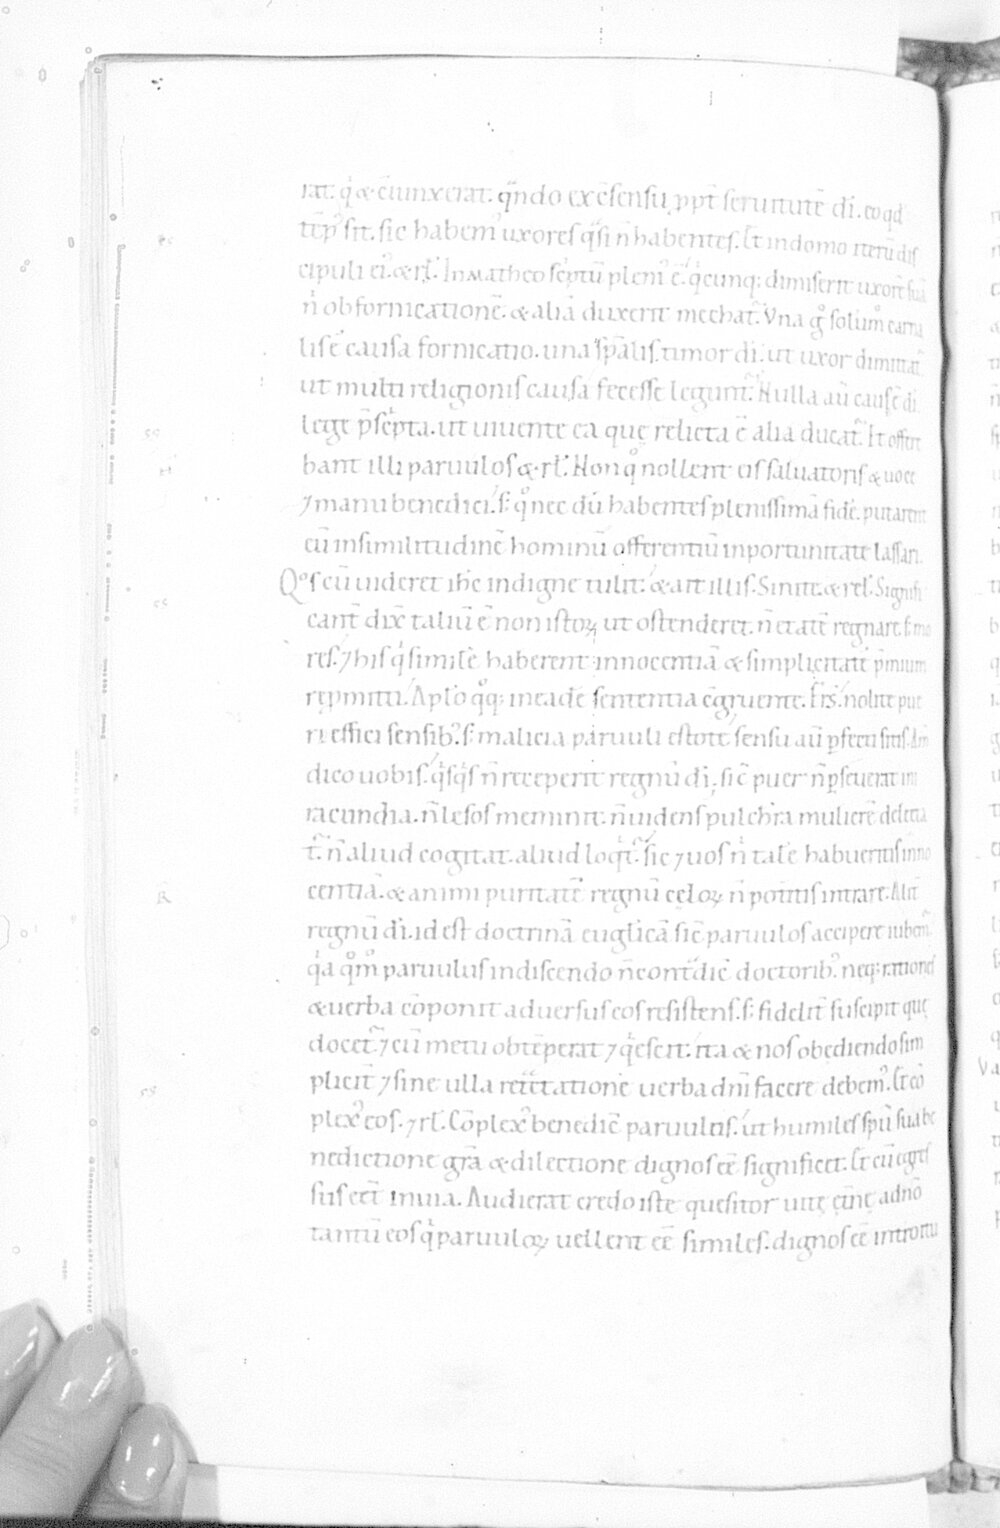 rat. q̇ & c̄iunxerat. q̈ndo ex c̄sensu ꝓpt̄ seruitutē di. eo qd
tēp᾽ sit. sic habem᾽ uxores q̈si n̄ habentes. Et in domo iterū dis
cipuli ei᾽. & rl̄. In matheo sc̄ptū plen᾽ ē. q̇cunq; dimiserit uxorē suā
n̓ ob fornicationē. & aliā duxerit mechat̄. Vna g̊ solūm᾽ carna
lis ē causa fornicatio. una sp̄alis. timor di. ut uxor dimittat̄
ut multi religionis causa fecesse legunt̄. Nulla aū causa ē di
lege p̄scͥpta. ut uiuente ea quę relicta ē alia ducat̄. Et offere
bant illi paruulos & rl̄. Non q̊ nollent eis saluatoris & uoce
⁊ manu benedici. s; q̊ nec dū habentes plenissimā fidē. putarent
eū in similitudinē hominū offerentiū inportunitate lassari.
Qͦs cū uideret ihc indigne tulit. & ait illis. Sinite. & rel̄. Signifi
cant̄ dix̄ taliū ē non istoꝝ ut ostenderet. n̄ etatē regnare. s; mo
res. ⁊ his q̇ similē haberent innocentiā & simplicitatē p̄mium
repmitti. Aplo q̊q; in eadē sententia c̄gruente. Frs̄. nolite pue
ri effici sensib᾽. s; malicia paruuli estote sensu aū ꝑfecti sitis. Am̄
dico uobis. q̇sq̇s n̄ receperit regnū di, sic̄ puer n̄ ꝑseuerat in i
racundia. n̄ lesos meminit. n̄ uidens pulchra mulierē delecta
t̄. n̄ aliud cogitat. aliud loq̇t̄. sic ⁊ uos n̓ talē habueritis inno
centiā. & animi puritatē regnū celoꝝ n̄ pot̄itis intrare. Alit̄
regnū di. id est doctrinā euglicā sic̄ paruulos accipere iubem̄
q̇a q̊m̊ paruulus in discendo n̄ contͣdic̄ doctorib᾽. neq; rationes
& uerba cōponit aduersus eos resistens. s; fidelit̄ suscipit que
docet̄. ⁊ cū metu obtēperat ⁊ q̇escit. ita & nos obediendo sim
plicit̄ ⁊ sine ulla retͣctatione uerba dn̄i facere debem᾽. Et cō
plex᾽ eos. ⁊ rl̄. Cōplex᾽ benedic̄ paruulis. ut humiles spū sua be
nedictione gr̄a & dilectione dignos eē significet. Et cū egres
sus eēt in uia. Audierat credo iste quesitor uitę et̄nę a dnō
tantū eos q̇ paruuloꝝ uellent eē similes. dignos eē introitu